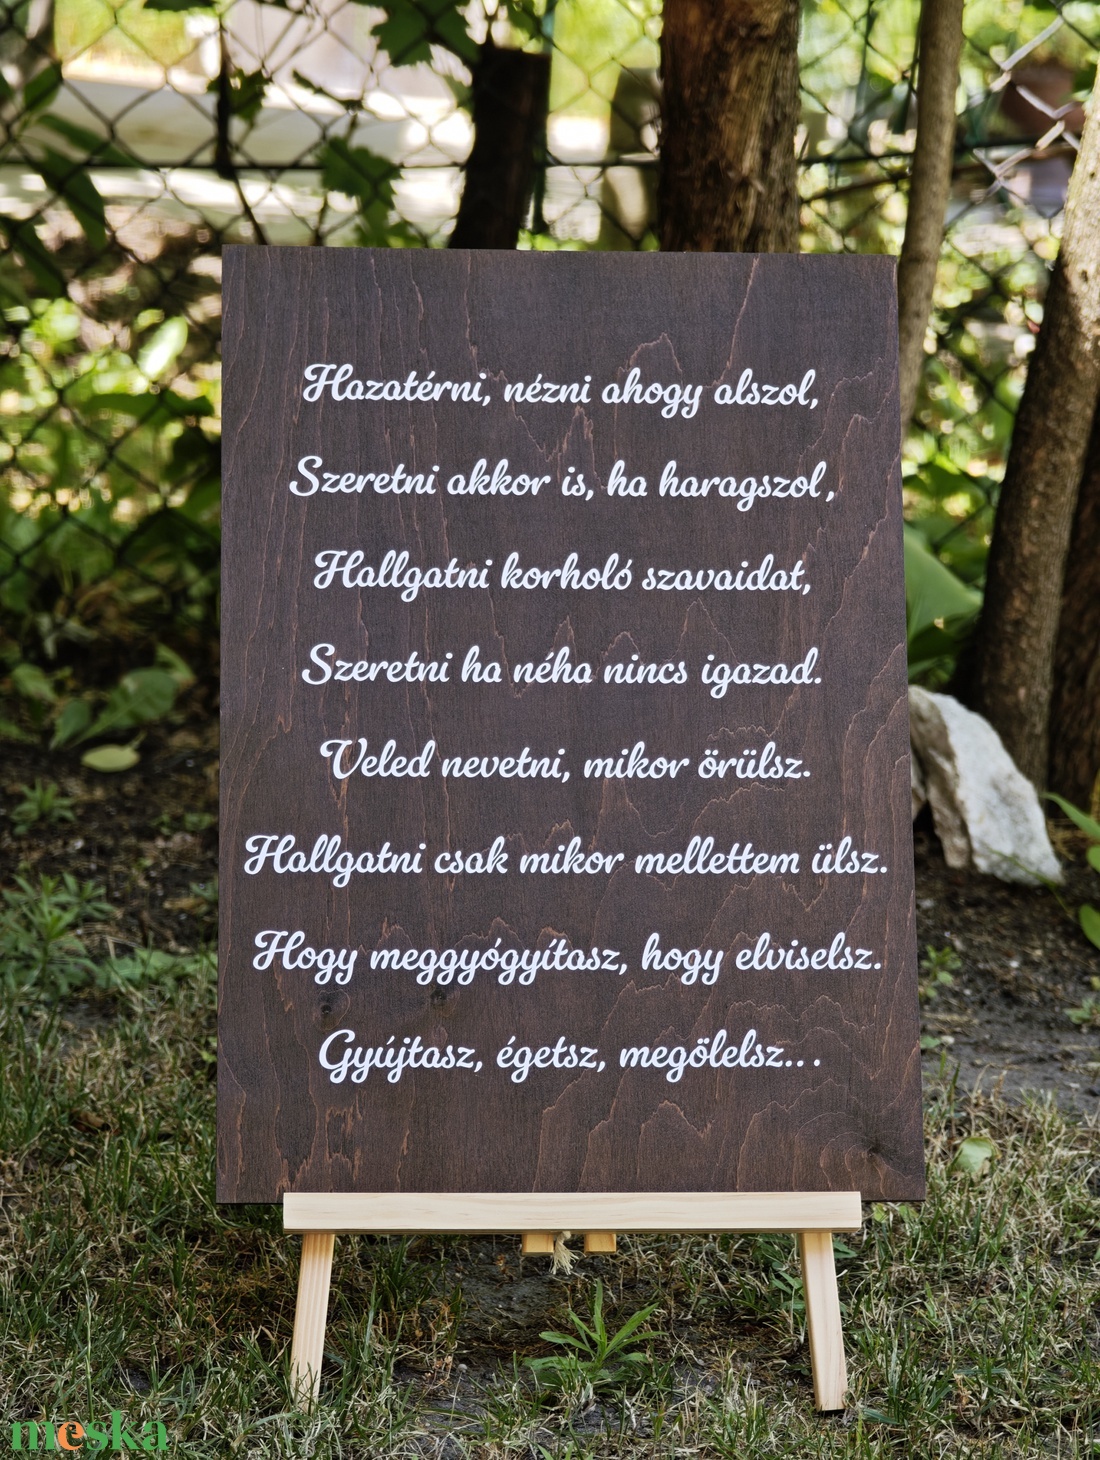 Hazatérni, nézni ahogy alszol,
Szeretni akkor is, ha haragszol,
Hallgatni korholó szavaidat,
Szeretni ha néha nincs igazad.
Veled nevetni, mikor örülsz.
Hallgatni csak mikor mellettem ülsz.
Hogy meggyógyítasz, hogy elviselsz.
Gyújtasz, égetsz, megölelsz...
meska